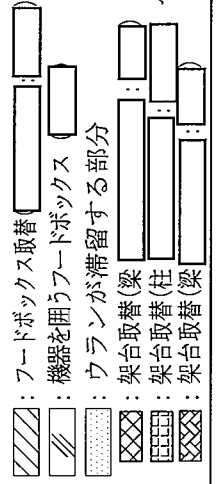 ：フードボックス取替
：機器を囲うフードボックス
：ウランが滞留する部分
：架台取替(梁
：架台取替(柱
：架台取替(梁